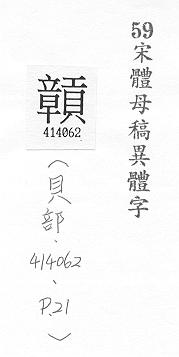 59宋體母稿異體字
贑
414062
（貝部、414062、P.21）